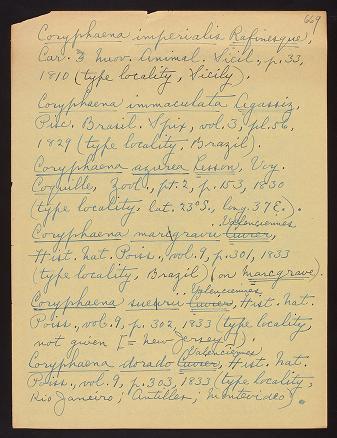 669
Coryphaena imperialis Rafinesque,
Car. & Nuov. Animal. Sicil, p. 33,
1810 (type locality, Sicily).
Coryphaena immaculata Agassiz,
Pisc. Brasil. Spix, vol. 3, pl. 56,
1829 (type locality, Brazil).
Coryphaena azurea Lesson, Voy.
Coquille, Zool., pt. 2, p. 153, 1830
(type locality. lat. 23°S., long. 37 E.).
Valenciennes
Coryphaena marcgravii Cuvier,
Hist. Nat. Poiss., vol. 9, p. 301, 1833
(type locality, Brazil) (on Marcgrave).
Valenciennes
Coryphaena sueurii Cuvier, Hist. Nat.
Poiss., vol. 9, p. 302, 1833 (type locality
not given [= New Jersey]).
Valenciennes
Coryphaena dorado Cuvier, Hist. Nat.
Poiss., vol. 9, p. 303, 1833 (type locality,
Rio Janeiro; Antilles; Montevideo).